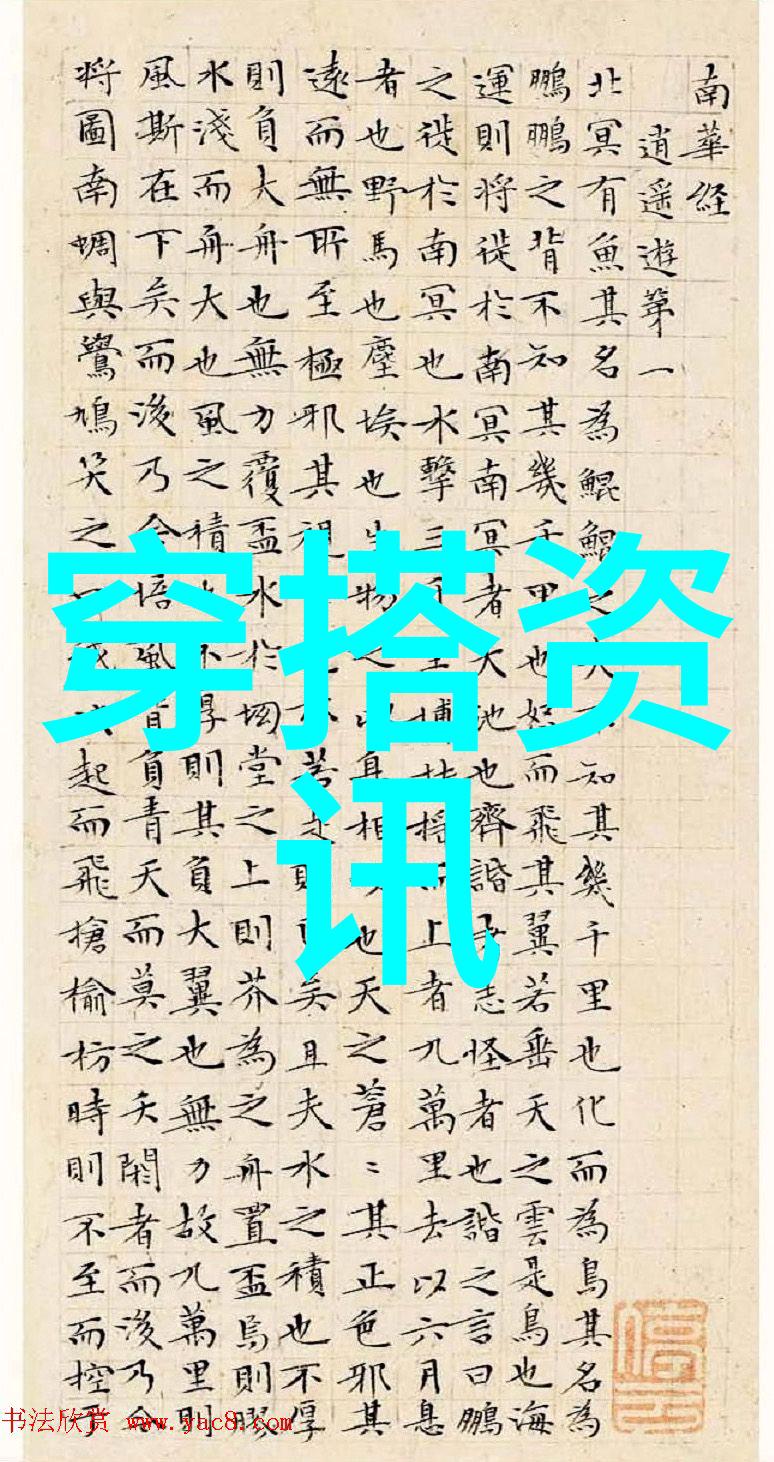 南華経
逍遥遊第一
北冥有魚其名為鯤鯤之大不知其幾千里也化而為鳥其名為
鵬鵬之背不知其幾千里也怒而飛其翼若垂天之雲是鳥也海
運則将徙於南冥南冥者天池也齊諧者志怪者也諧之言曰鵬
之徙於南冥也水擊三千里摶扶揺而上者九萬里去以六月息
者也野馬也塵埃也生物之以息相也天之蒼〻其正色邪其
遠而無所至極邪其視亦若是則已矣且夫水之積也不厚
則負大舟也無力覆盃水於坳堂之上則芥為之舟置盃焉則膠
水淺而舟大也風之積也不厚則其負大翼也無力故九萬里則
風斯在下矣而後乃今培風背負青天而莫之夭閼者而後乃今
将圖南蜩與鷽鳩笑之曰我決起而飛搶榆枋時則不至而控於
穿搭资
讯
书法欣赏 www.yac8.com